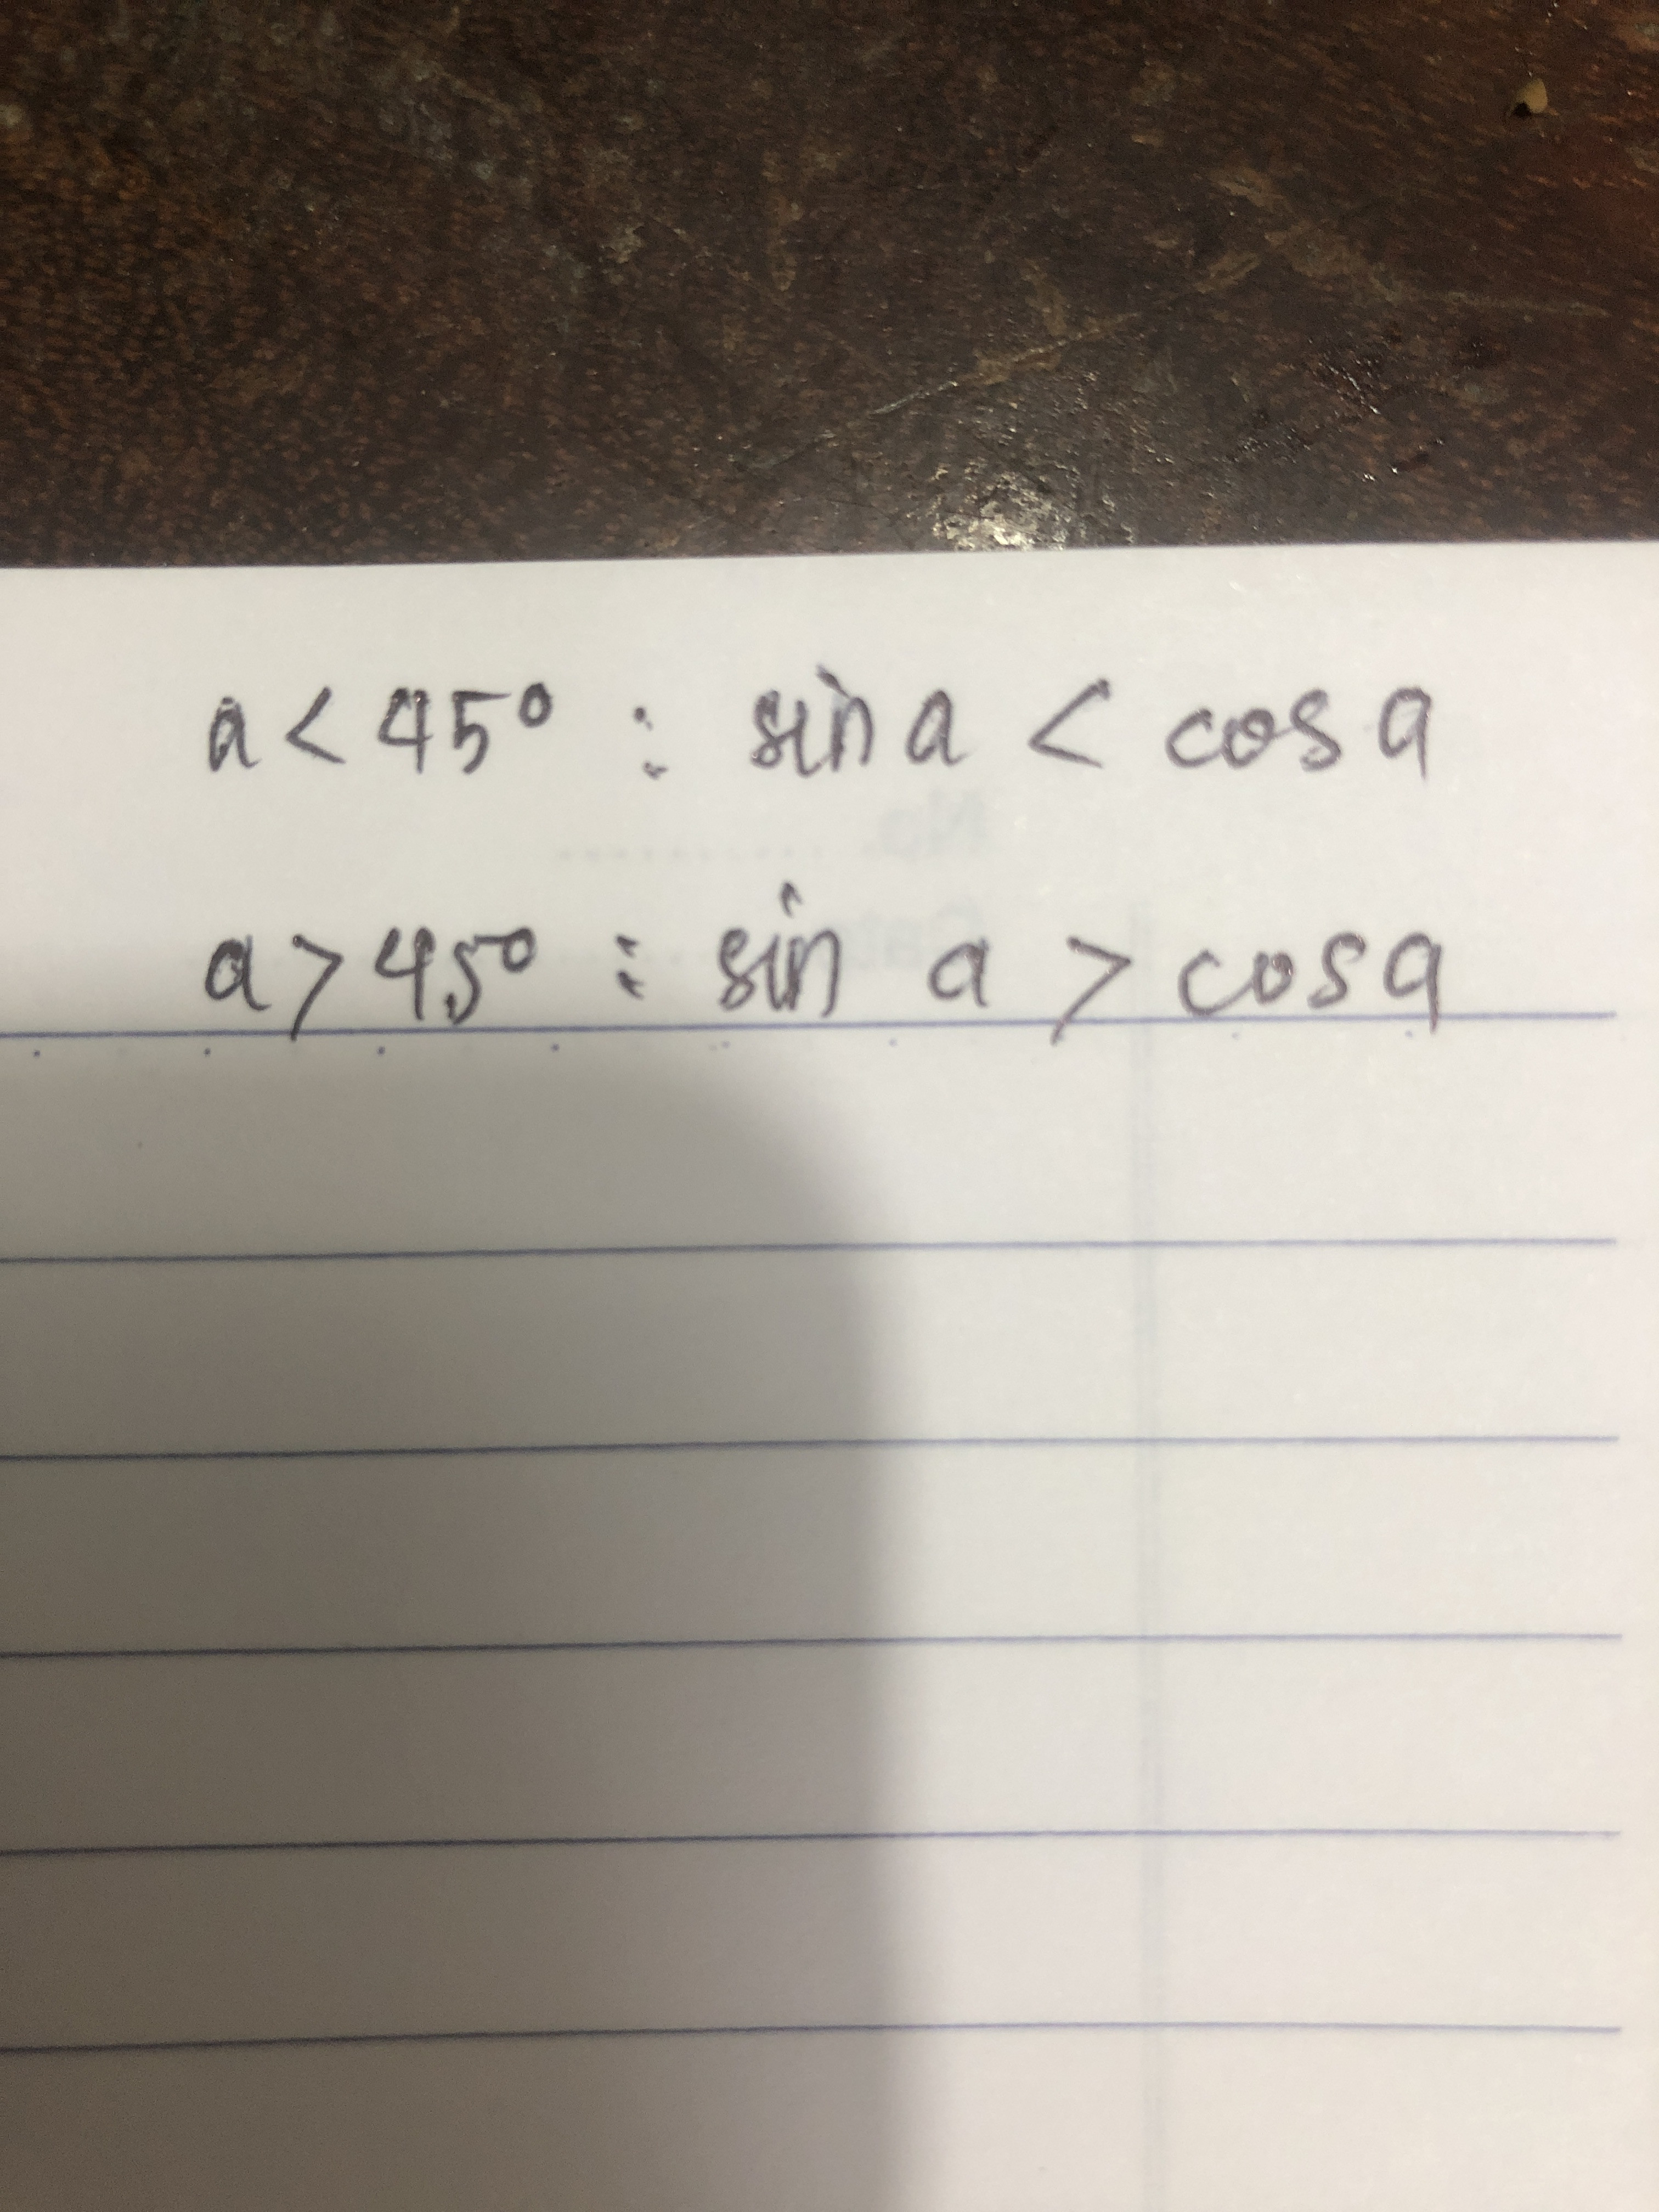 a < 45° : sin a < cos a
a > 45° : sin a > cos a